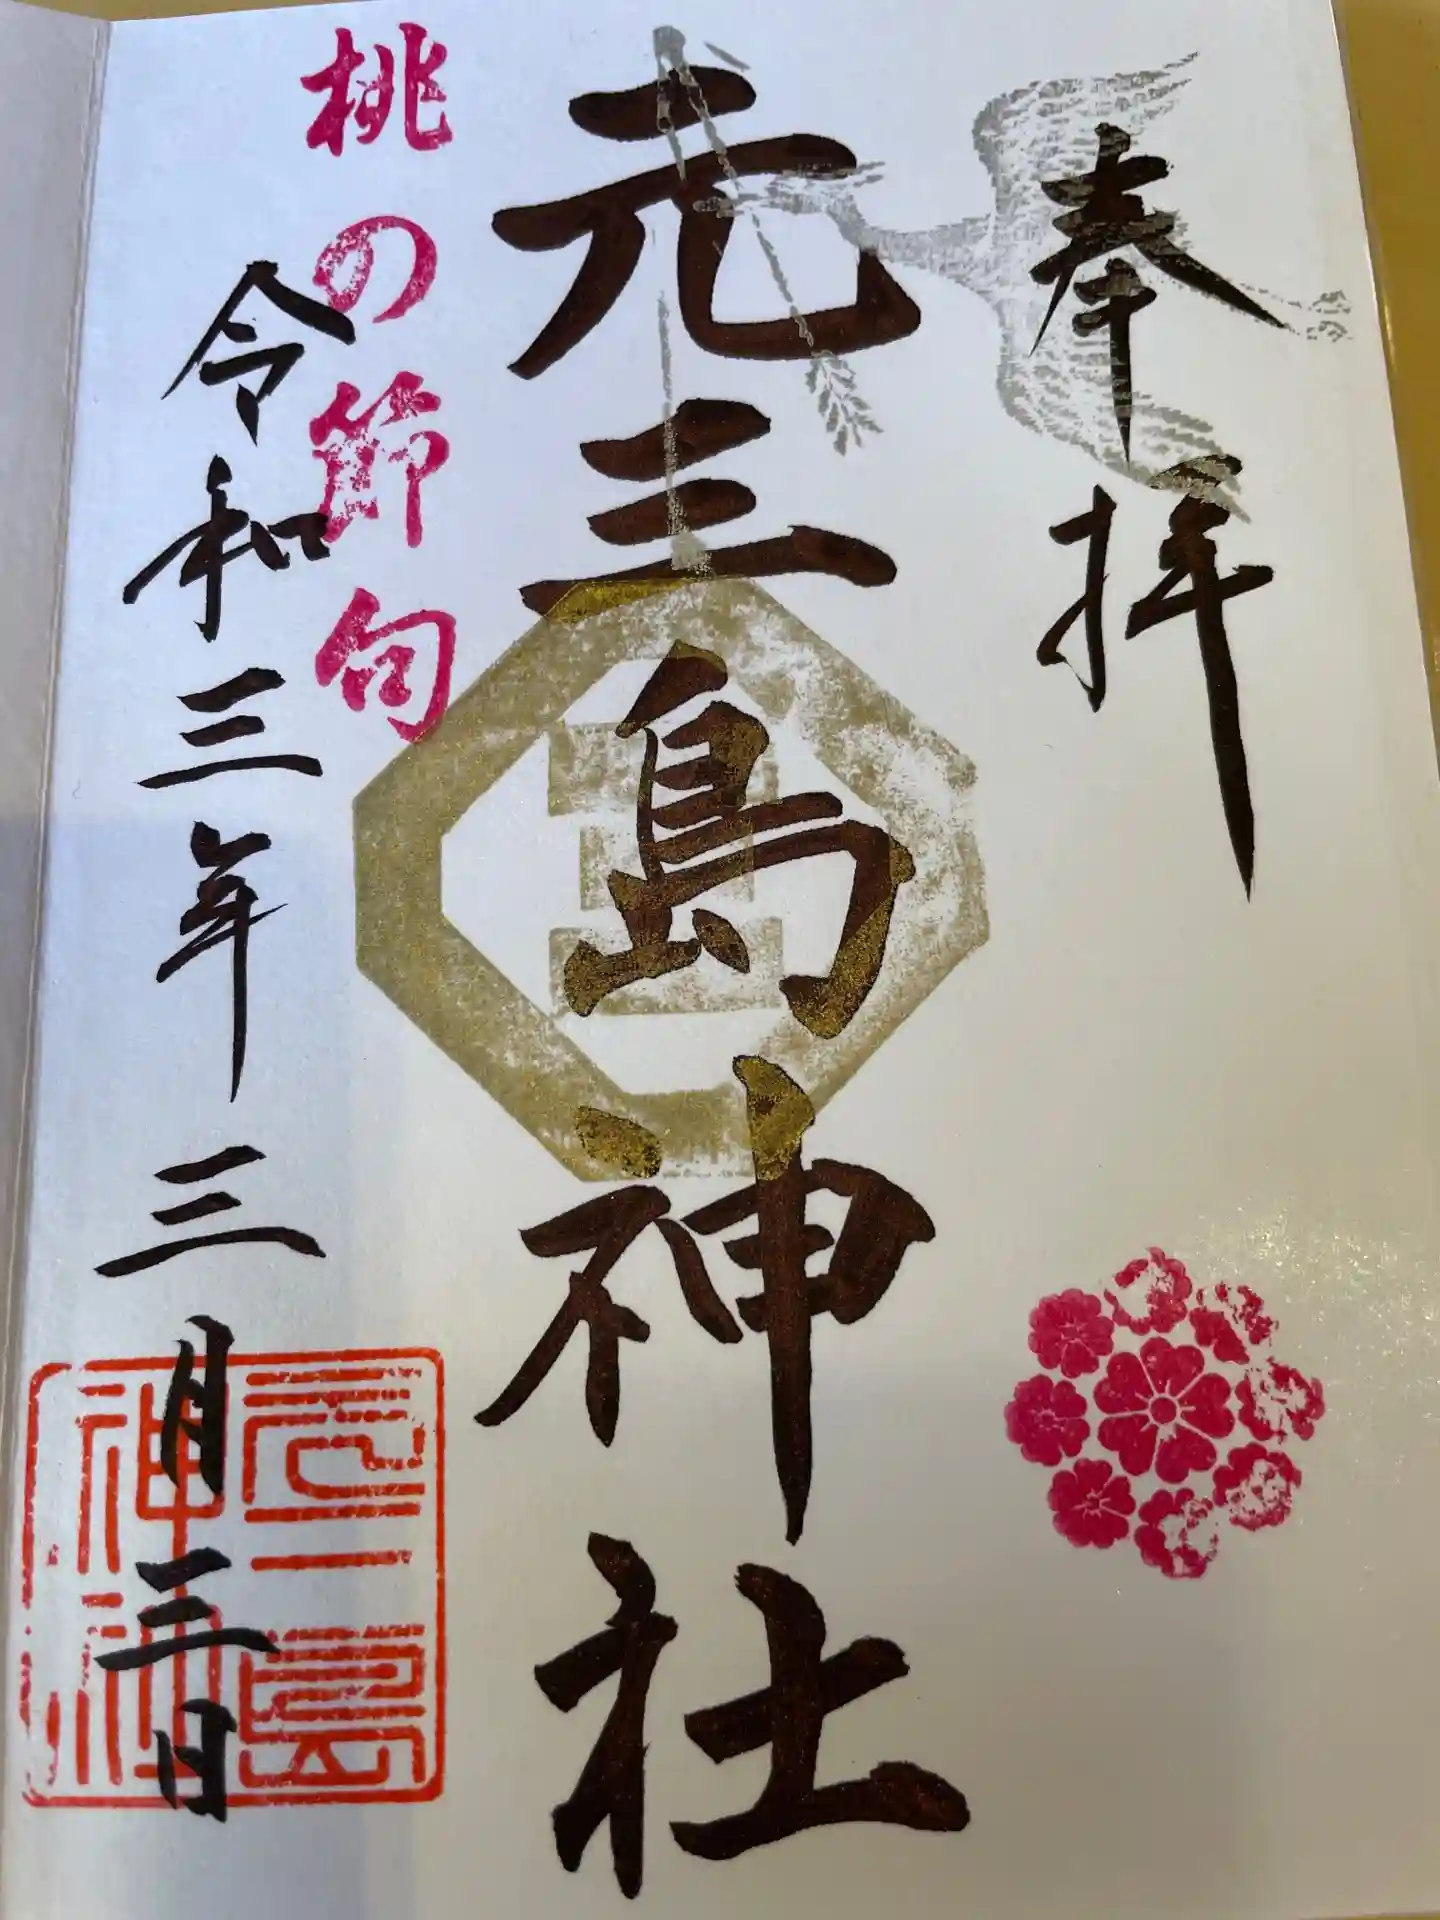 奉拝
元三島神社
桃の節句
令和三年三月三日
元三島神社